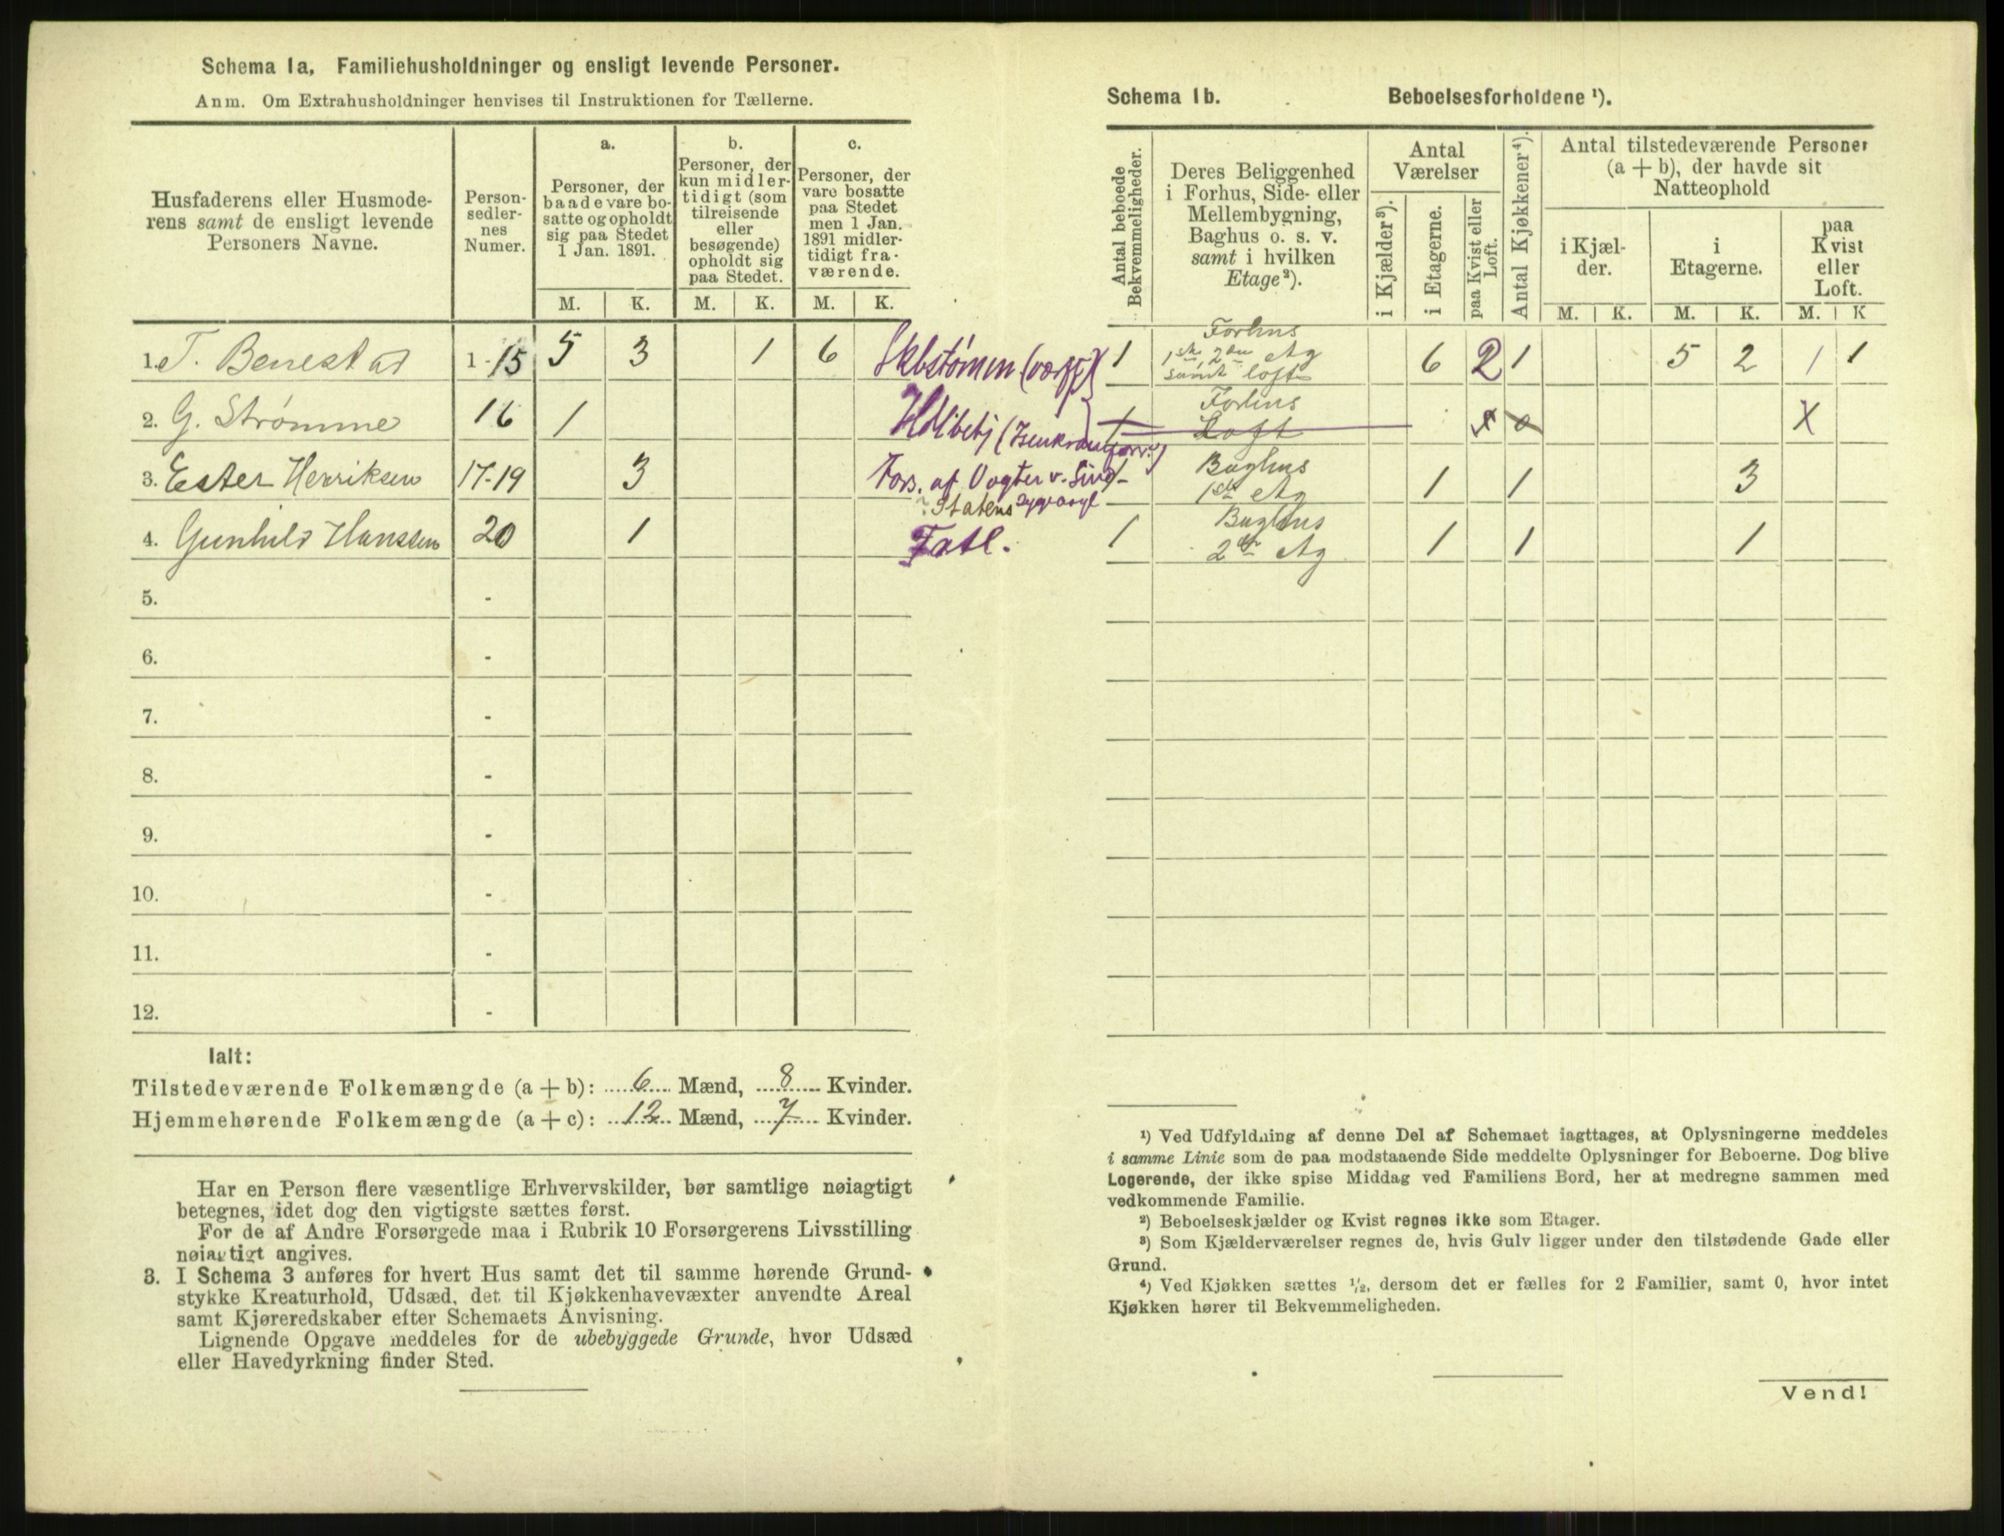 Schema 1a, Familiehusholdninger og ensligt levende Personer.
Anm. Om Extrahusholdninger henvises til Instruktionen for Tællerne.
Husfaderens eller Husmode-
rens samt de ensligt levende
Personers Navne.
Person-
sedler-
nes
Numer.
a.
Personer, der
baade vare bo-
satte og opholdt
sig paa Stedet
1 Jan. 1891.
b.
Personer, der
kun midler-
tidigt (som
tilreisende
eller
besøgende)
opholdt sig
paa Stedet.
c.
Personer, der
vare bosatte
paa Stedet
men 1 Jan.
1891 midler-
tidigt fra-
værende.
M. K. M. K. M. K.
1. T. Benestad 1-15 5 3 1 6 Skbstømm (værft)
2. G. Strømme 16 1
3. Ester Henriksen 17-19 3 Fors. af Vogter v. Sind-
Statens
4. Gunhild Hanssen 20 1 Fatl.
5. -
6. -
7. -
8. -
9. -
10. -
11. -
12. -
Ialt:
Tilstedeværende Folkemængde (a + b): 6 Mænd, 8 Kvinder.
Hjemmehørende Folkemængde (a + c): 12 Mænd, 7 Kvinder.
Har en Person flere væsentlige Erhvervskilder, bør samtlige nøiagtigt
betegnes, idet dog den vigtigste sættes først.
For de af Andre Forsørgede maa i Rubrik 10 Forsørgerens Livsstilling
nøiagtigt angives.
3. I Schema 3 anføres for hvert Hus samt det til samme hørende Grund-
stykke Kreaturhold, Udsæd, det til Kjøkkenhavevæxter anvendte Areal
samt Kjøreredskaber efter Schemaets Anvisning.
Lignende Opgave meddeles for de ubebyggede Grunde, hvor Udsæd
eller Havedyrkning finder Sted.
Schema 1b. Beboelsesforholdene ¹).
Antal beboede
Bekvemmeligheder.
Deres Beliggenhed
i Forhus, Side- eller
Mellembygning,
Baghus o. s. v.
samt i hvilken
Etage²).
Antal
Værelser
i Kjælder³).
i Etagerne.
paa Kvist eller
Loft.
Antal Kjøkkener⁴).
Antal tilstedeværende Personer
(a + b), der havde sit
Natteophold
i Kjæl-
der.
i
Etagerne.
paa
Kvist
eller
Loft.
M. K. M. K. M. K
Forhus
1 1ste 2den Etg 6 2 1 5 2 1 1
samt loft
Forhus
1 Loft x 0 X
Baghus
1 1ste Etg 1 1 3
Baghus
1 2den Etg 1 1 1
¹) Ved Udfyldning af denne Del af Schemaet iagttages, at Oplysningerne meddeles
i samme Linie som de paa modstaaende Side meddelte Oplysninger for Beboerne. Dog blive
Logerende, der ikke spise Middag ved Familiens Bord, her at medregne sammen med
vedkommende Familie.
²) Beboelseskjælder og Kvist regnes ikke som Etager.
³) Som Kjælderværelser regnes de, hvis Gulv ligger under den tilstødende Gade eller
Grund.
⁴) Ved Kjøkken sættes ¹/₂, dersom det er fælles for 2 Familier, samt 0, hvor intet
Kjøkken hører til Bekvemmeligheden.
Vend!